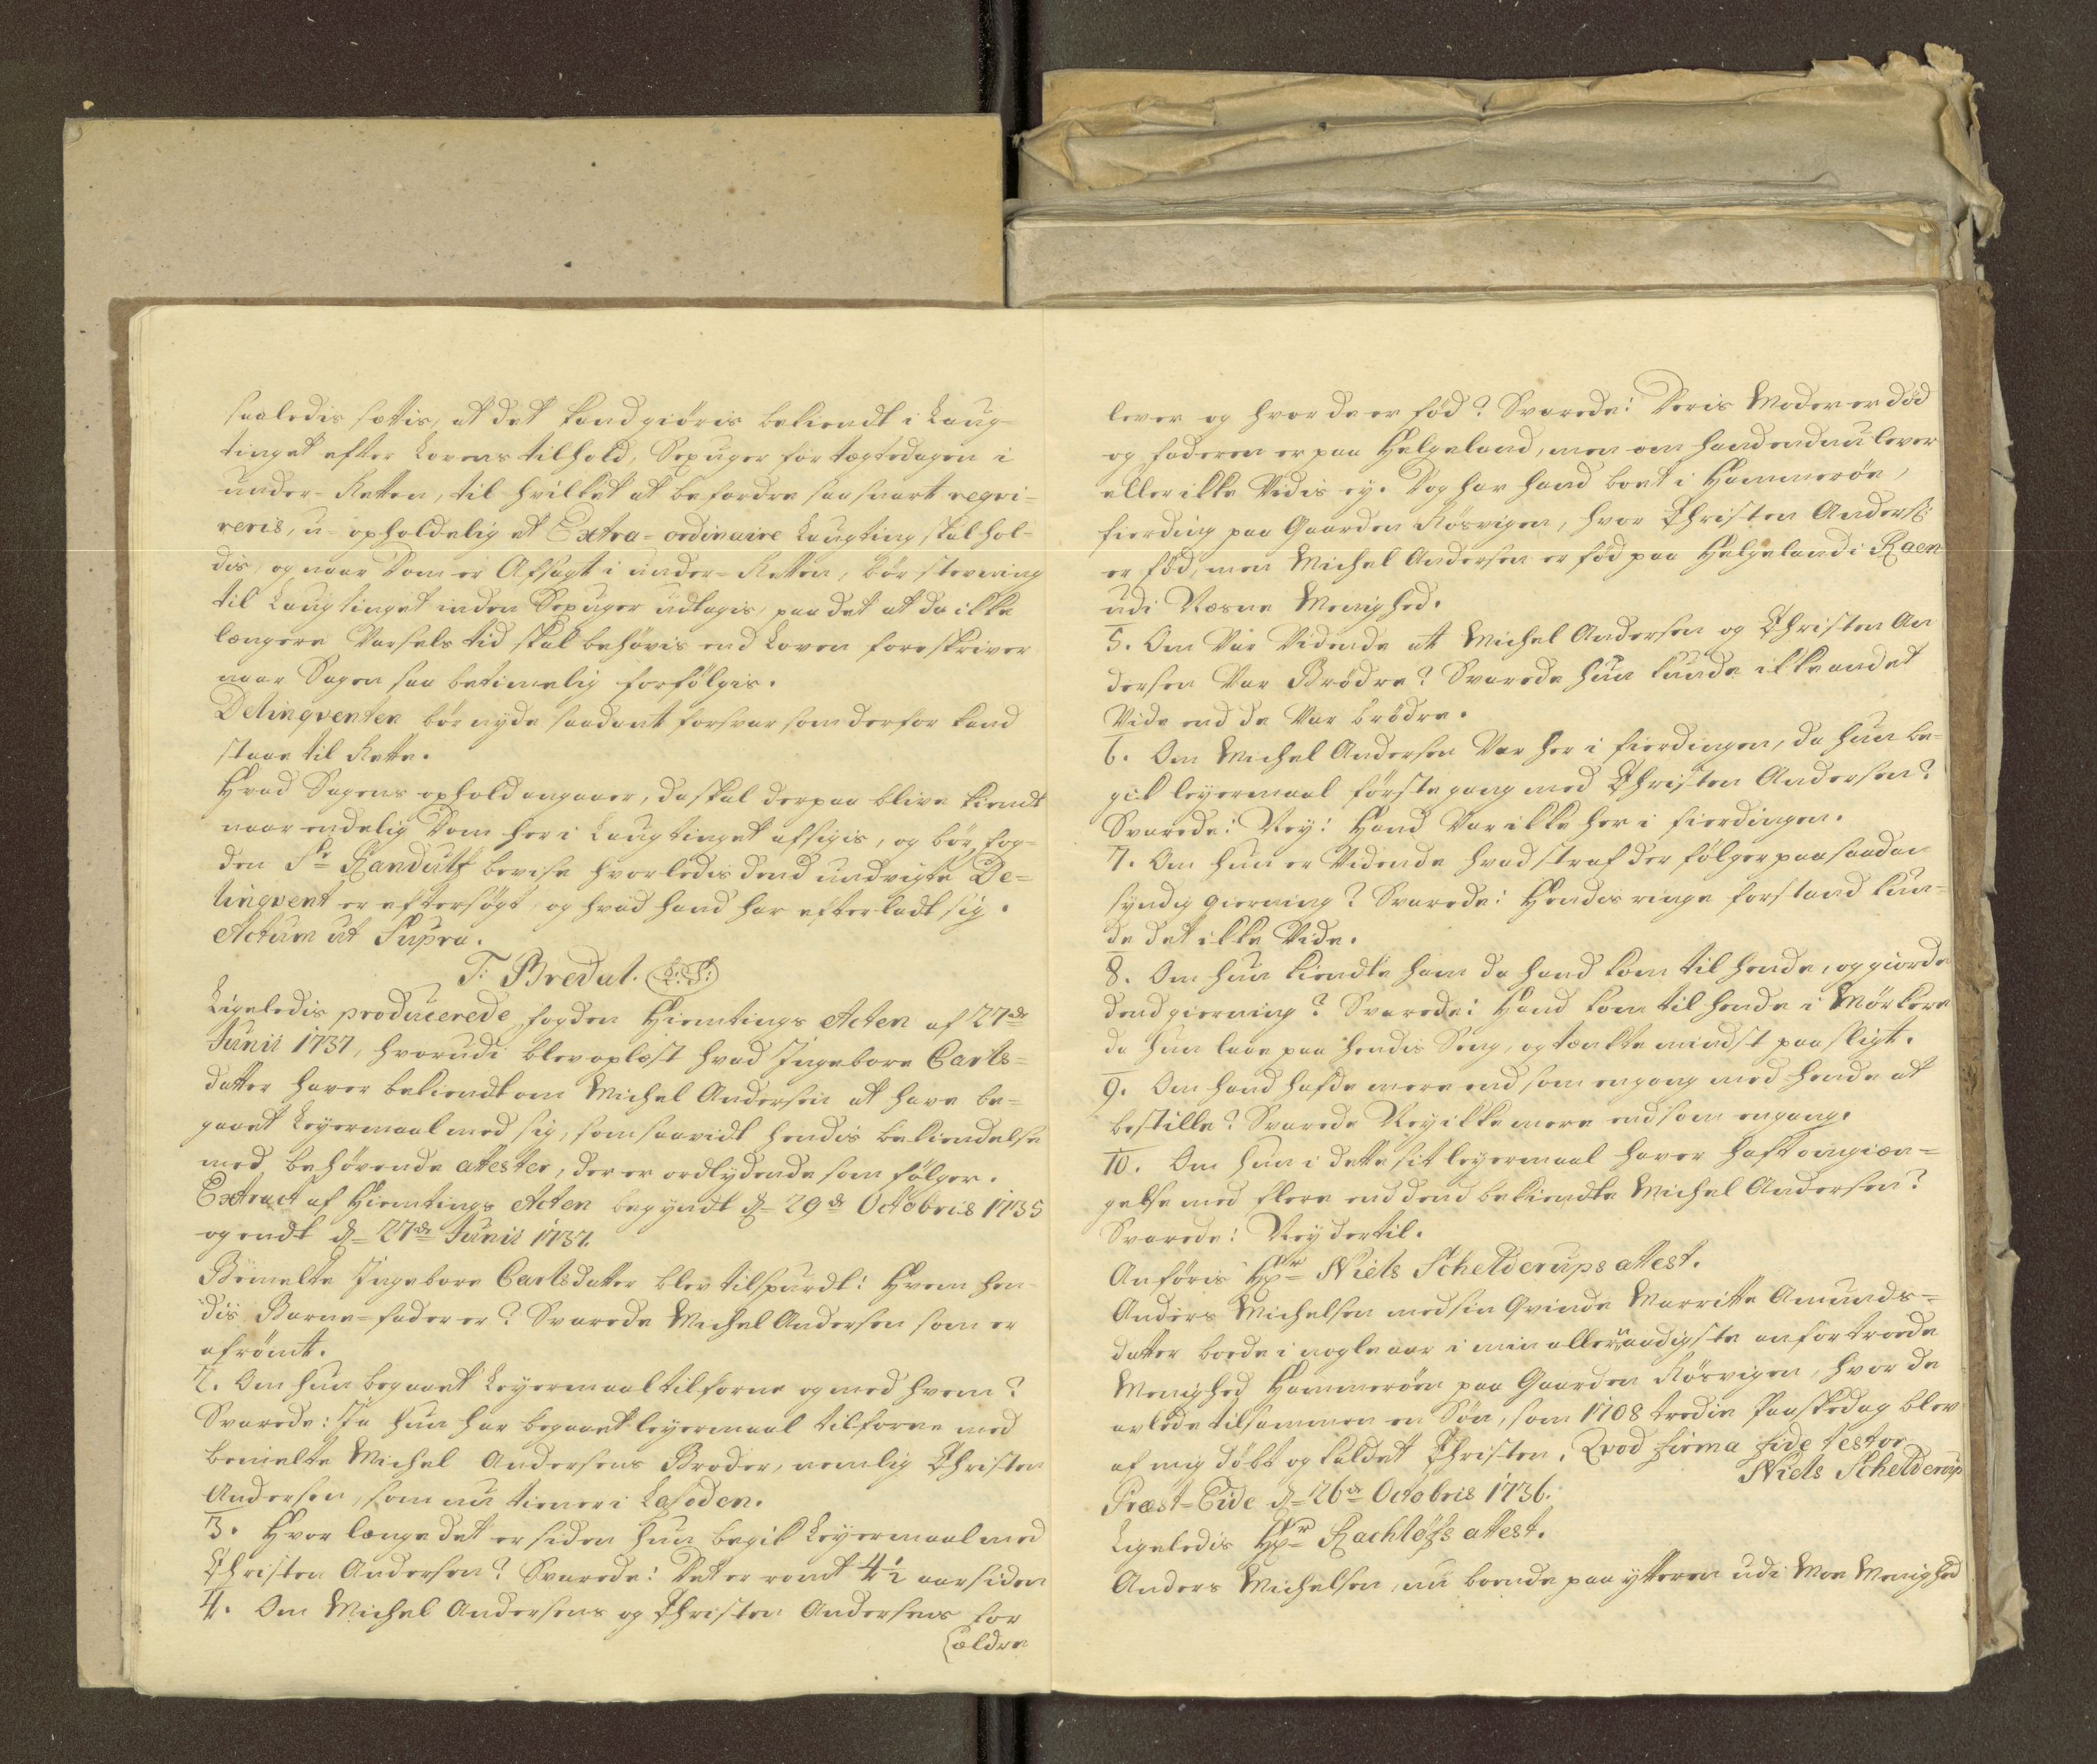 saaledis sættis, at det kand giöris bekiendt i Laug-
tinget efter Lovens tilhold, Sex uger for tægtedagen i
under-Retten, til hvilket at befordre saasnart reqvi-
reris, u-opholdelig et Extra-ordinaire Laugting skal hol-
dis, og naar Dom er Afsagt i under-Retten, bör stevning
til Laugtinget inden Sex uger udtagis, paa det at da ikke
længere Varsels tid skal behövis end Loven foreskriver
naar Sagen saa betimelig forfölgis.
Delinqventen bör nyde saadant forsvar som derfor kand
staae til Rette.
Hvad Sagens ophold angaaer, da skal derpaa blive kiendt
naar endelig Dom her i Laugtinget afsigis, og bör fog-
den Sr Randulf bevise hvorledis dend undvigte De-
linqvent er eftersögt og hvad hand har efterladt sig.
Actum ut Supra.
T: Bredal. (L:S:)
Ligeledis producerede fogden Hiemtings Acten af 27de
Junii 1737, hvorudi blev oplæst hvad Ingebore Carls-
datter haver bekiendt om Michel Andersen at have be-
gaaet Leyermaal med sig, som saavidt hendis bekiendelse
med behövende attester, der er ordlydende som fölger.
Extract af Hiemtings Acten begyndt d= 29de Octobris 1735
og endt d= 27de Junii 1737.
Bemelte Ingebore Carlsdatter blev tilspurdt: Hvem hen-
dis Barne-fader er? Svarede Michel Andersen som er
afrömt.
2. Om hun begaaet Leyermaal tilforne og med hvem?
Svarede: Ja hun har begaaet leyermaal tilforne med
bemelte Michel Andersens Broder, nemlig Christen
Andersen, som nu tiener i Lofoden.
3. Hvor længe det er siden hun begik Leyermaal med
Christen Andersen? Svarede: Det er vondt 4½ aar siden
4. Om Michel Andersens og Christen Andersens for
ældre
lever og hvor de er fød? Svarede: Deris Moder er död
og faderen er paa Helgeland, men om hand endnu lever
eller ikke Vidis ey. Dog har hand boet i Hammeröe,
fierding paa Gaarden Rösvigen, hvor Christen Anders:
er fød, men Michel Andersen er fød paa Helgeland i Raen
udi Næsne Menighed.
5. Om Var Vidende at Michel Andersen og Christen An
dersen Var Brødre? Svarede hun kunde ikke andet
Vide end de Var brødre.
6. Om Michel Andersen Var her i fierdingen, da hun be-
gik leyermaal förste gang med Christen Andersen?
Svarede: Ney: Hand Var ikke her i fierdingen.
7. Om hun er Vidende hvad straf der fölger paa saadan
syndig gierning? Svarede: Hendis ringe forstand kun-
de det ikke Vide.
8. Om hun kiendte ham da hand kom til hende, og giorde
dend gierning? Svarede: Hand kom til hende i Mörkere
da hun laae paa hendis Seng, og tænkte mindst paa sligt.
9. Om hand hafde mere end som engang med hende at
bestille? Svarede Ney ikke mere end som engang.
10. Om hun i dette sit leyermaal haver haft omgiæn-
gelse med flere end dend bekiendte Michel Andersen?
Svarede: Ney dertil.
Anföris Hr= Niels Schelderups attest.
Anders Michelsen med sin Qvinde Marritte Amunds-
datter boede i nogle aar i min allernaadigste anfortroede
Menighed Hammeröen paa Gaarden Rösvigen, hvor de
avlede tilsammen en Sön, som 1708 tredie Paaskedag blev
af mig döbt og kaldet Christen. Qvod firma fide testor
Niels Schelderup
Præst-Eide d= 26de Octobris 1736.
Ligeledis Hr= Rachlöfs attest.
Anders Michelsen, nu boende paa ytteren udi Moe Menighed